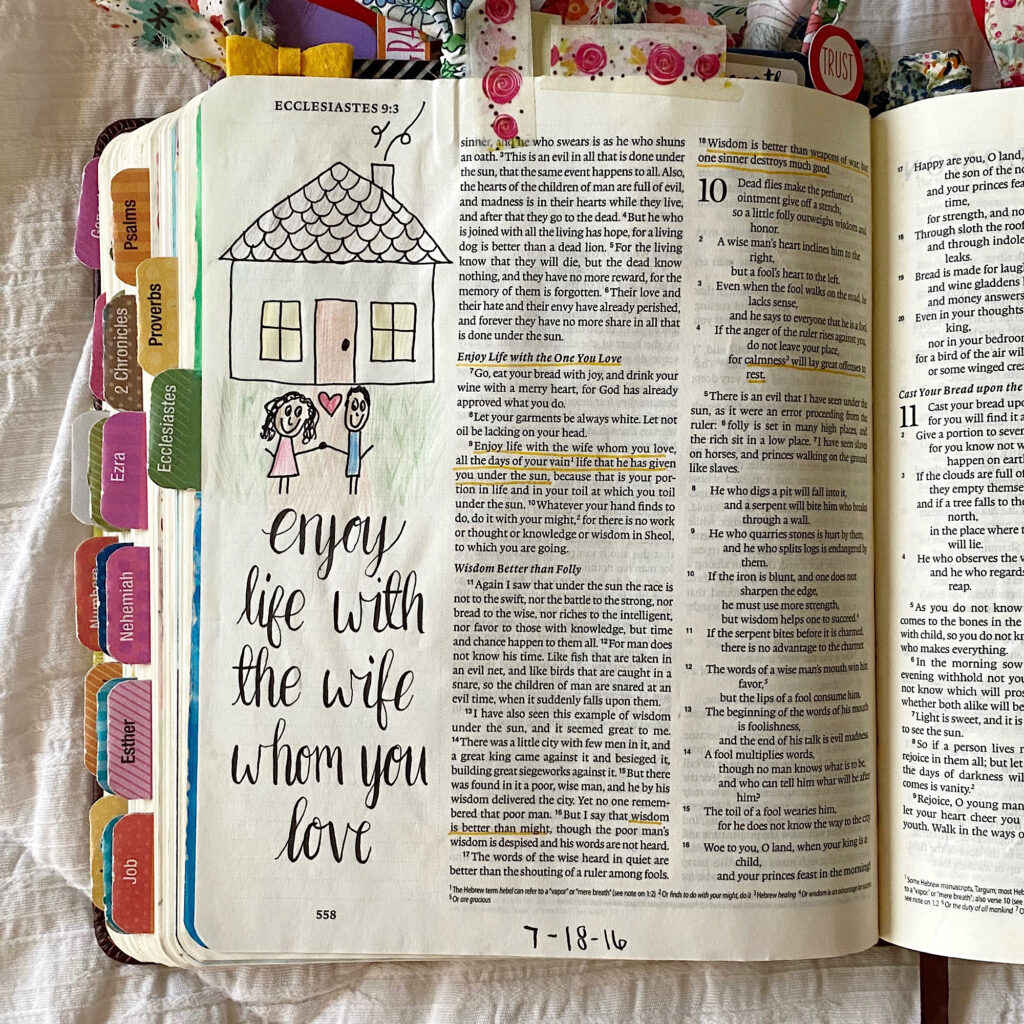 TRUST
Psalms
Proverbs
2 Chronicles
Ecclesiastes
Ezra
Numbers
Nehemiah
Esther
Job
ECCLESIASTES 9:3
enjoy
life with
the wife
whom you
love
558
sinner, and he who swears is as he who shuns
an oath. ³This is an evil in all that is done under
the sun, that the same event happens to all. Also,
the hearts of the children of man are full of evil,
and madness is in their hearts while they live,
and after that they go to the dead. ⁴But he who
is joined with all the living has hope, for a living
dog is better than a dead lion. ⁵For the living
know that they will die, but the dead know
nothing, and they have no more reward, for the
memory of them is forgotten. ⁶Their love and
their hate and their envy have already perished,
and forever they have no more share in all that
is done under the sun.
Enjoy Life with the One You Love
⁷Go, eat your bread with joy, and drink your
wine with a merry heart, for God has already
approved what you do.
⁸Let your garments be always white. Let not
oil be lacking on your head.
⁹Enjoy life with the wife whom you love,
all the days of your vain¹ life that he has given
you under the sun, because that is your por-
tion in life and in your toil at which you toil
under the sun. ¹⁰Whatever your hand finds to
do, do it with your might,² for there is no work
or thought or knowledge or wisdom in Sheol,
to which you are going.
Wisdom Better than Folly
¹¹Again I saw that under the sun the race is
not to the swift, nor the battle to the strong, nor
bread to the wise, nor riches to the intelligent,
nor favor to those with knowledge, but time
and chance happen to them all. ¹²For man does
not know his time. Like fish that are taken in
an evil net, and like birds that are caught in a
snare, so the children of man are snared at an
evil time, when it suddenly falls upon them.
¹³I have also seen this example of wisdom
under the sun, and it seemed great to me.
¹⁴There was a little city with few men in it, and
a great king came against it and besieged it,
building great siegeworks against it. ¹⁵But there
was found in it a poor, wise man, and he by his
wisdom delivered the city. Yet no one remem-
bered that poor man. ¹⁶But I say that wisdom
is better than might, though the poor man's
wisdom is despised and his words are not heard.
¹⁷The words of the wise heard in quiet are
better than the shouting of a ruler among fools.
¹⁸Wisdom is better than weapons of war, but
one sinner destroys much good.
10 Dead flies make the perfumer's
ointment give off a stench;
so a little folly outweighs wisdom and
honor.
2 A wise man's heart inclines him to the
right,
but a fool's heart to the left.
3 Even when the fool walks on the road, he
lacks sense,
and he says to everyone that he is a fool.
4 If the anger of the ruler rises against you,
do not leave your place,
for calmness³ will lay great offenses to
rest.
⁵There is an evil that I have seen under the
sun, as it were an error proceeding from the
ruler: ⁶folly is set in many high places, and
the rich sit in a low place. ⁷I have seen slaves
on horses, and princes walking on the ground
like slaves.
8 He who digs a pit will fall into it,
and a serpent will bite him who breaks
through a wall.
9 He who quarries stones is hurt by them,
and he who splits logs is endangered by
them.
10 If the iron is blunt, and one does not
sharpen the edge,
he must use more strength,
but wisdom helps one to succeed.⁴
11 If the serpent bites before it is charmed,
there is no advantage to the charmer.
12 The words of a wise man's mouth win him
favor,⁵
but the lips of a fool consume him.
13 The beginning of the words of his mouth
is foolishness,
and the end of his talk is evil madness.
14 A fool multiplies words,
though no man knows what is to be,
and who can tell him what will be after
him?
15 The toil of a fool wearies him,
for he does not know the way to the city.
16 Woe to you, O land, when your king is a
child,
and your princes feast in the morning!
¹ The Hebrew term hebel can refer to a "vapor" or "mere breath" (see note on 1:2) ² Or finds to do with your might, do it ³ Hebrew healing ⁴ Or wisdom is an advantage for success
⁵ Or are gracious
7-18-16
17 Happy are you, O land,
the son of the
and your princes
time,
for strength, and
18 Through sloth the
and through
leaks.
19 Bread is made for
and wine gladdens
and money answers
20 Even in your thoughts
king,
nor in your
for a bird of the air will
or some winged
Cast Your Bread upon the
11 Cast your bread
for you will find it
2 Give a portion to
for you know not
happen on
3 If the clouds are full of
they empty
and if a tree falls to the
north,
in the place where
will lie.
4 He who observes the
and he who regards
reap.
⁵As you do not know
comes to the bones in the
with child, so you do not
who makes everything.
⁶In the morning sow
evening withhold not
not know which will
whether both alike will be
⁷Light is sweet, and it is
to see the sun.
⁸So if a person lives
rejoice in them all; but let
the days of darkness will
comes is vanity.²
⁹Rejoice, O young man,
let your heart cheer you
youth. Walk in the ways
¹ Some Hebrew manuscripts, Targum; most
to a "vapor" or "mere breath"; also verse 10 (see
see note on 1:2 ⁶ Or the duty of all mankind